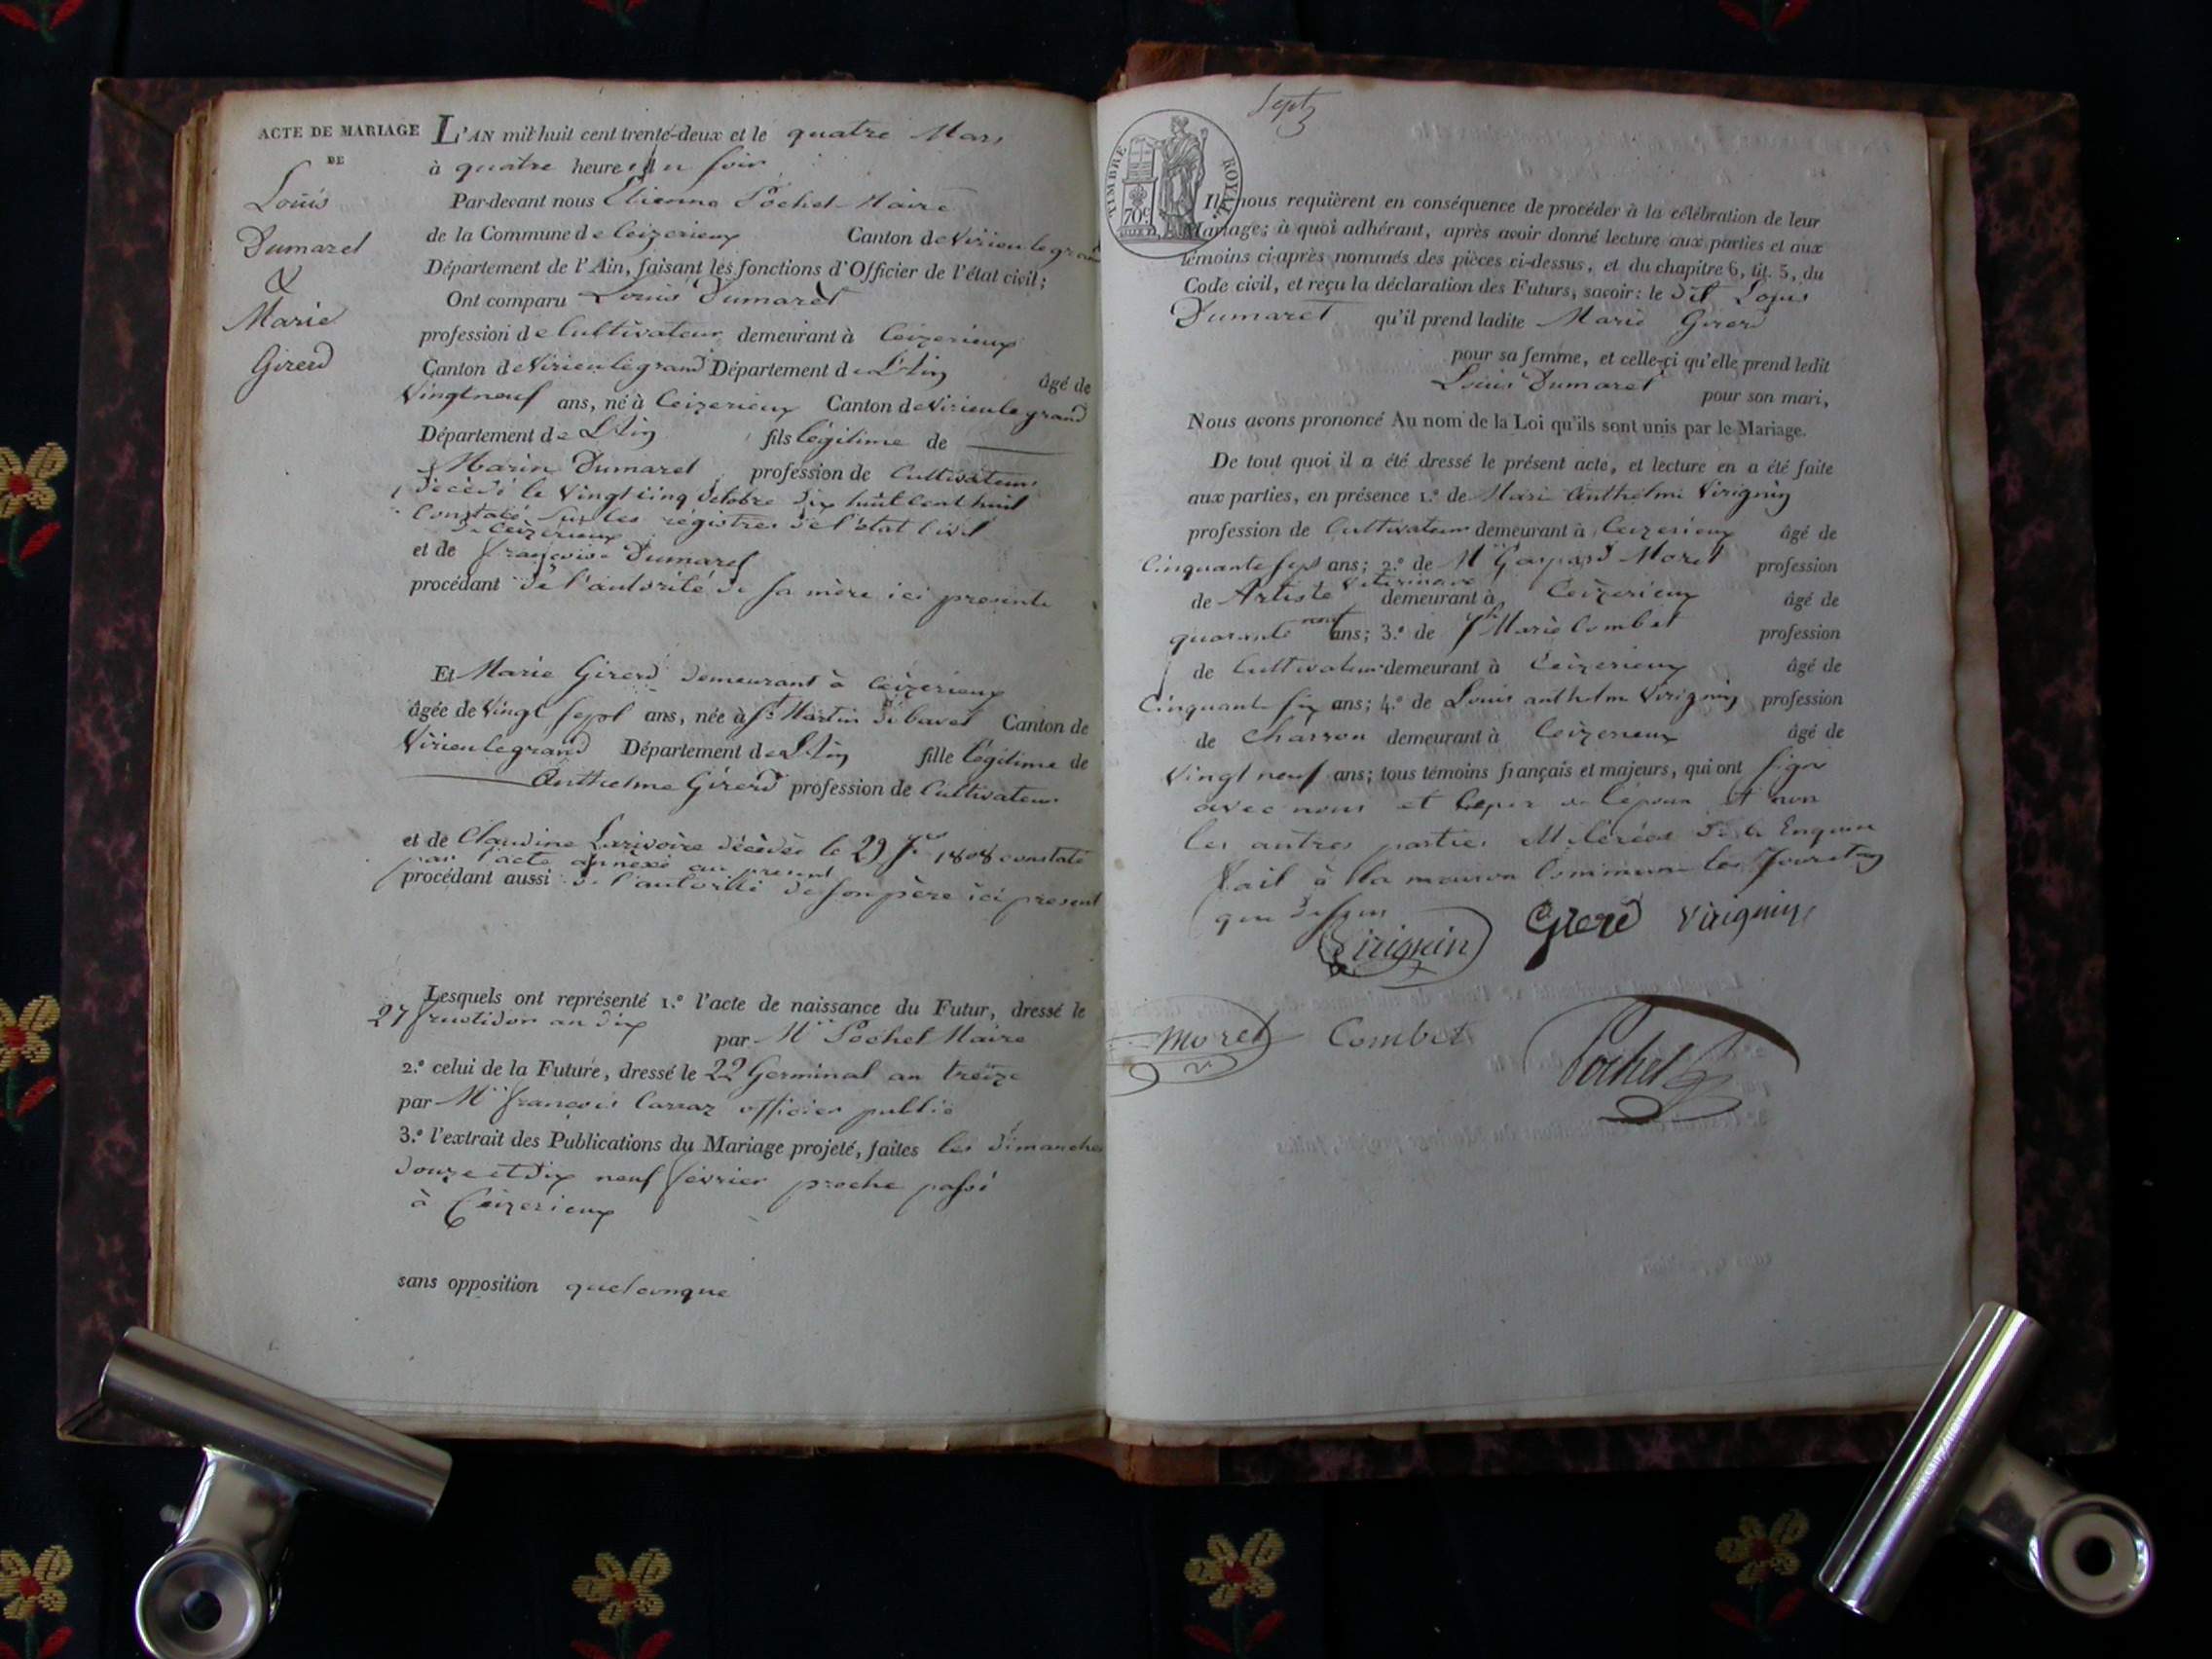 ACTE DE MARIAGE
DE
Louis
Dumarel
&
Marie
Girerd
L'AN mil huit cent trente-deux et le quatre Mars
à quatre heures du soir
Par-devant nous Etienne Pochet Maire
de la Commune de Ceizerieux Canton de Virieu le grand
Département de l'Ain, faisant les fonctions d'Officier de l'état civil;
Ont comparu Louis Dumarel
profession de Cultivateur demeurant à Ceizerieux
Canton de Virieu le grand Département de L'Ain âgé de
Vingt neuf ans, né à Ceizerieux Canton de Virieu le grand
Département de L'Ain fils légitime de
Marin Dumarel profession de Cultivateur
décédé le Vingt cinq octobre dix huit cent huit
constaté sur les régistres de l'état Civil
de Ceizerieux
et de françoise Dumarel
procédant de l'autorité de sa mère ici presente
Et Marie Girerd demeurant à Ceizerieux
âgée de Vingt sept ans, née à St Martin de bavel Canton de
Virieu le grand Département de L'Ain fille légitime de
Anthelme Girerd profession de Cultivateur
et de Claudine Larivoire décédée le 29 1808 constaté
par l'acte annexé au present
procédant aussi de l'autorité de son père ici present
Lesquels ont représenté 1.º l'acte de naissance du Futur, dressé le
27 fructidor an dix par Mr Pochet Maire
2.º celui de la Future, dressé le 22 Germinal an treize
par Mr françois Carraz officier public
3.º l'extrait des Publications du Mariage projeté, faites les dimanches
douze et dix neuf février proche passé
à Ceizerieux
sans opposition quelconque
Sept
TIMBRE ROYAL
70c
Ils nous requièrent en conséquence de procéder à la célébration de leur
Mariage; à quoi adhérant, après avoir donné lecture aux parties et aux
témoins ci-après nommés des pièces ci-dessus, et du chapitre 6, tit. 5, du
Code civil, et reçu la déclaration des Futurs, savoir: le dit Louis
Dumarel qu'il prend ladite Marie Girerd
pour sa femme, et celle-çi qu'elle prend ledit
Louis Dumarel pour son mari,
Nous avons prononcé Au nom de la Loi qu'ils sont unis par le Mariage.
De tout quoi il a été dressé le présent acte, et lecture en a été faite
aux parties, en présence 1.º de Marie Anthelme Virignin
profession de Cultivateur demeurant à Ceizerieux âgé de
Cinquante sept ans; 2.º de Mr Gaspard Moret profession
de Artiste Vétérinaire demeurant à Ceizerieux âgé de
quarante neuf ans; 3.º de Marie Combet profession
de Cultivateur demeurant à Ceizerieux âgé de
Cinquante six ans; 4.º de Louis anthelme Virignin profession
de Charron demeurant à Ceizerieux âgé de
Vingt neuf ans; tous témoins français et majeurs, qui ont signé
avec nous et le père de l'épouse et non
les autres parties illiterées de ce Enquises
fait à la maison Commune les jour et an
que dessus
Virignin Girerd Virignin
Moret Combet
Pochet